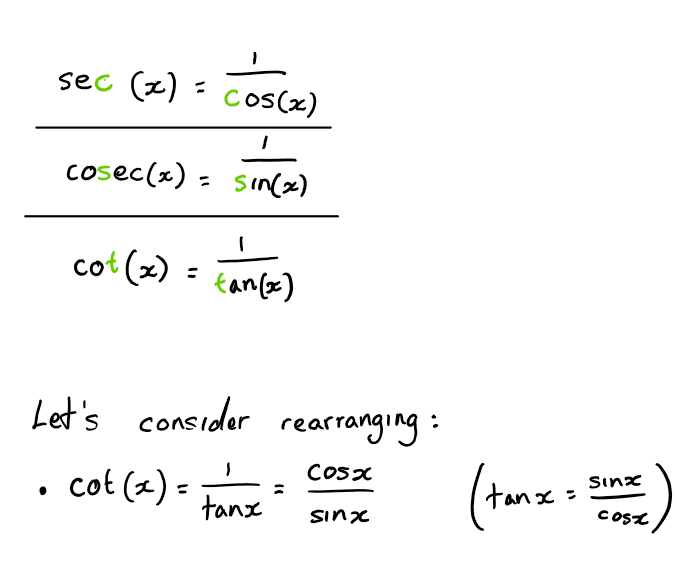 sec (x) = 1/cos(x)
cosec(x) = 1/sin(x)
cot(x) = 1/tan(x)
Let's consider rearranging:
• cot(x) = 1/tanx = cosx/sinx (tanx = sinx/cosx)